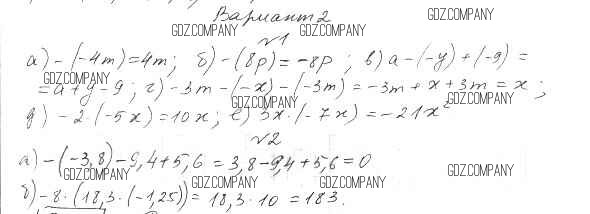 Вариант 2
GDZ.COMPANY GDZ.COMPANY
№1
а) -(-4m)=4m; б) -(8p)=-8p; в) a-(-y)+(-9)=
GDZ.COMPANY GDZ.COMPANY
=a+y-9; г) -3m-(-x)-(-3m)=-3m+x+3m=x;
GDZ.COMPANY GDZ.COMPANY
д) -2·(-5x)=10x; е) 3x·(-7x)=-21x²
№2
а) -(-3,8)-9,4+5,6=3,8-9,4+5,6=0
GDZ.COMPANY GDZ.COMPANY GDZ.COMPANY
б) -8·(18,3·(-1,25))=18,3·10=183.
GDZ.COMPANY GDZ.COMPANY